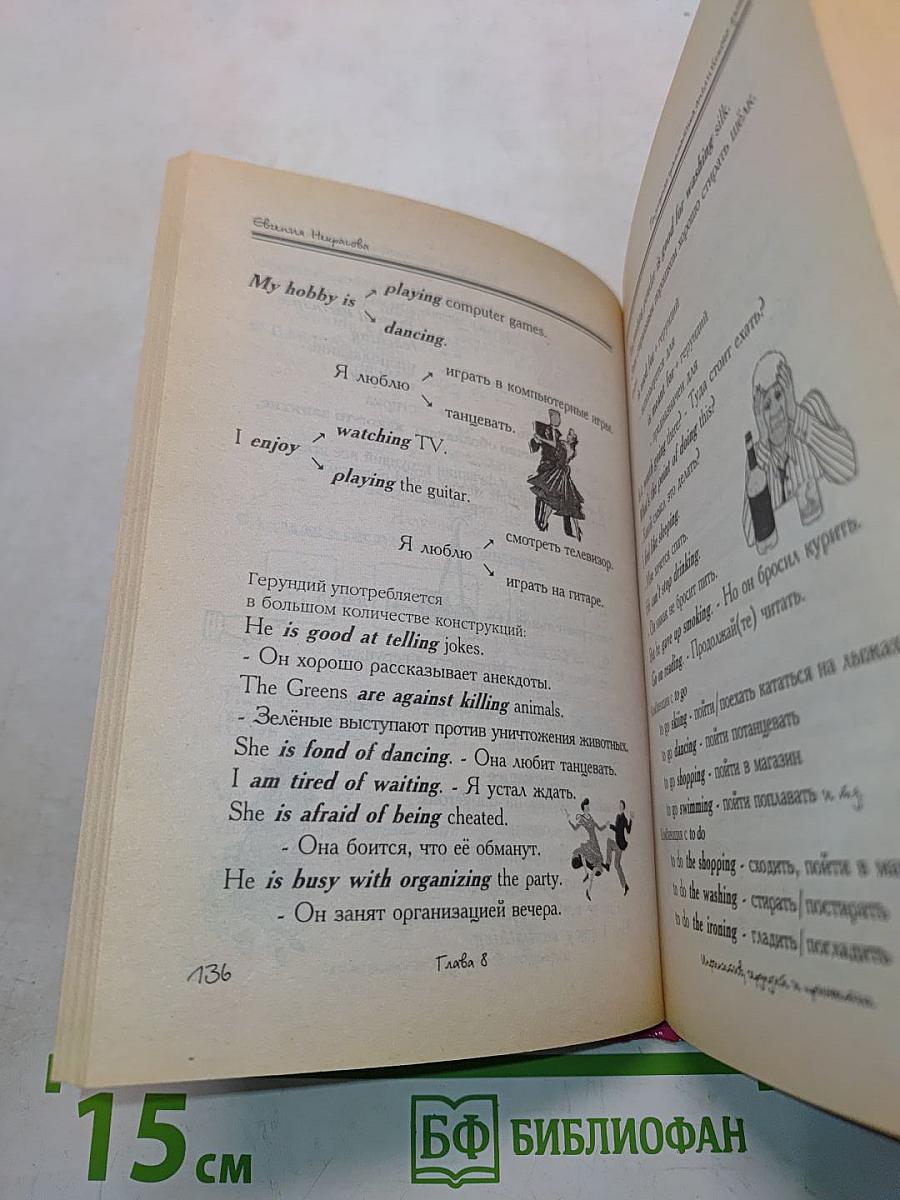 Евгения Некрасова
My hobby is ↗ playing computer games.
↘ dancing.
Я люблю ↗ играть в компьютерные игры.
↘ танцевать.
I enjoy ↗ watching TV.
↘ playing the guitar.
Я люблю ↗ смотреть телевизор.
↘ играть на гитаре.
Герундий употребляется
в большом количестве конструкций:
He is good at telling jokes.
- Он хорошо рассказывает анекдоты.
The Greens are against killing animals.
- Зелёные выступают против уничтожения животных.
She is fond of dancing. - Она любит танцевать.
I am tired of waiting. - Я устал ждать.
She is afraid of being cheated.
- Она боится, что её обманут.
He is busy with organizing the party.
- Он занят организацией вечера.
136
Глава 8
is good for washing silk.
хорошо стирать шёлк.
- герундий
for - герундий
предназначен для
worth going there? - Туда стоит ехать?
the point of doing this?
смысл это делать?
like sleeping.
хочется спать.
can't stop drinking.
Он никак не бросит пить.
he gave up smoking. - Но он бросил курить.
Go on reading. - Продолжай(те) читать.
с to go
to go skiing - пойти/поехать кататься на лыжах
to go dancing - пойти потанцевать
to go shopping - пойти в магазин
to go swimming - пойти поплавать
с to do
to do the shopping - сходить, пойти в
to do the washing - стирать/постирать
to do the ironing - гладить/погладить
15 см
БФ БИБЛИОФАН